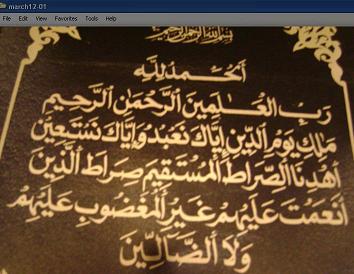 march12-01
File View Favorites Tools Help
بسم الله الرحمن الرحيم
اَلْحَمْدُ لِلَّهِ
رَبِّ الْعَالَمِينَ الرَّحْمَٰنِ الرَّحِيمِ
مَالِكِ يَوْمِ الدِّينِ إِيَّاكَ نَعْبُدُ وَإِيَّاكَ نَسْتَعِينُ
اهْدِنَا الصِّرَاطَ الْمُسْتَقِيمَ صِرَاطَ الَّذِينَ
أَنْعَمْتَ عَلَيْهِمْ غَيْرِ الْمَغْضُوبِ عَلَيْهِمْ
وَلَا الضَّالِّينَ